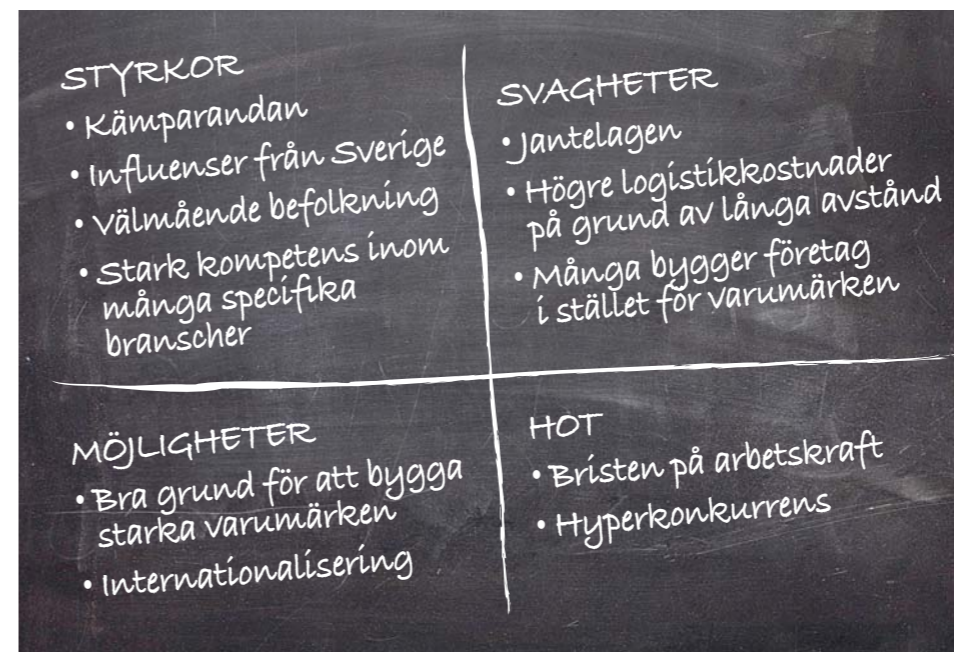 STYRKOR
• Kämparandan
• Influenser från Sverige
• Välmående befolkning
• Stark kompetens inom
många specifika
branscher
SVAGHETER
• Jantelagen
• Högre logistikkostnader
på grund av långa avstånd
• Många bygger företag
i stället för varumärken
MÖJLIGHETER
• Bra grund för att bygga
starka varumärken
• Internationalisering
HOT
• Bristen på arbetskraft
• Hyperkonkurrens